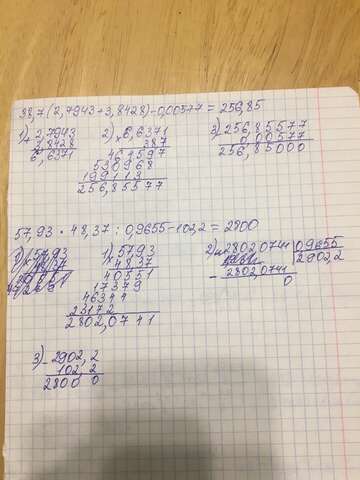 38,7(2,7943+3,8428)-0,00577=256,85
1)+ 2,7943 2)× 6,6371 3)- 256,85577
3,8428 38,7 0,00577
6,6371 464597 256,85000
530968
199113
256,85577
57,93 · 48,37 : 0,9655-102,2=2800
1)× 57,93 2) 2802,0741 | 0,9655
48,37 2902,2
40551 - 2802,0741
17379 0
46344
23172
2802,0741
3)- 2902,2
102,2
2800 0